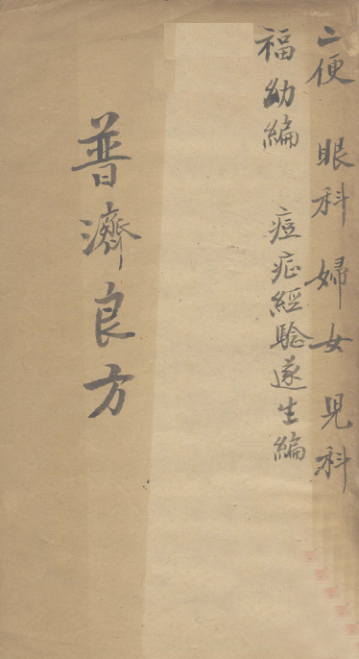 二便 眼科 婦女 児科
福幼編 痘症經驗遂生編
普濟良方